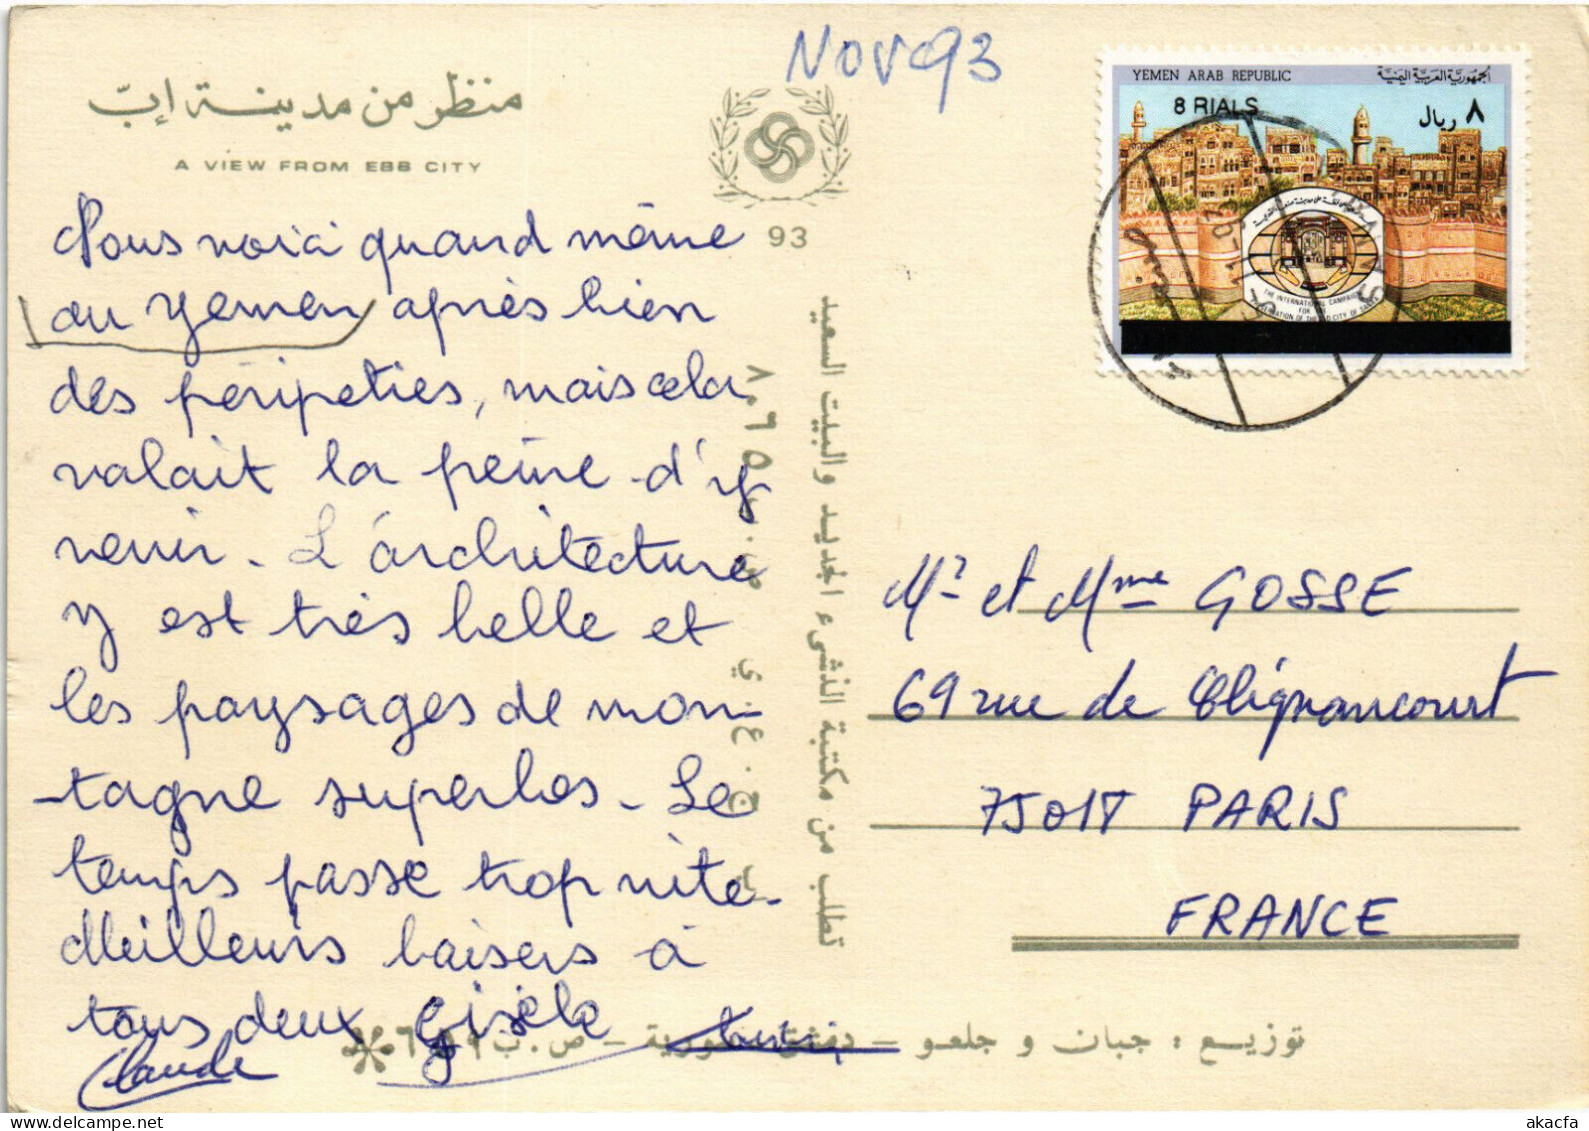 NOV 93
منظر من مدينة إبّ
A VIEW FROM EBB CITY
93
YEMEN ARAB REPUBLIC الجمهورية العربية اليمنية
8 RIALS ٨ ريال
THE INTERNATIONAL CAMPAIGN
FOR THE
OF THE OLD CITY OF SANA'A
Nous voici quand même
au Yemen après bien
des péripeties, mais cela
valait la peine d'y
venir. L'architecture
y est très belle et
les paysages de mon-
tagne superbes. Le
temps passe trop vite.
Meilleurs baisers à
tous deux Gisèle
Claude
تطلب من مكتبة الذشىء الجديد والبيت السعيد
Mr et Mme GOSSE
69 rue de Clignancourt
75018 PARIS
FRANCE
توزيع : جبان و جلعو - دمشق سورية - ص.ب
akacfa-france delcampe.net